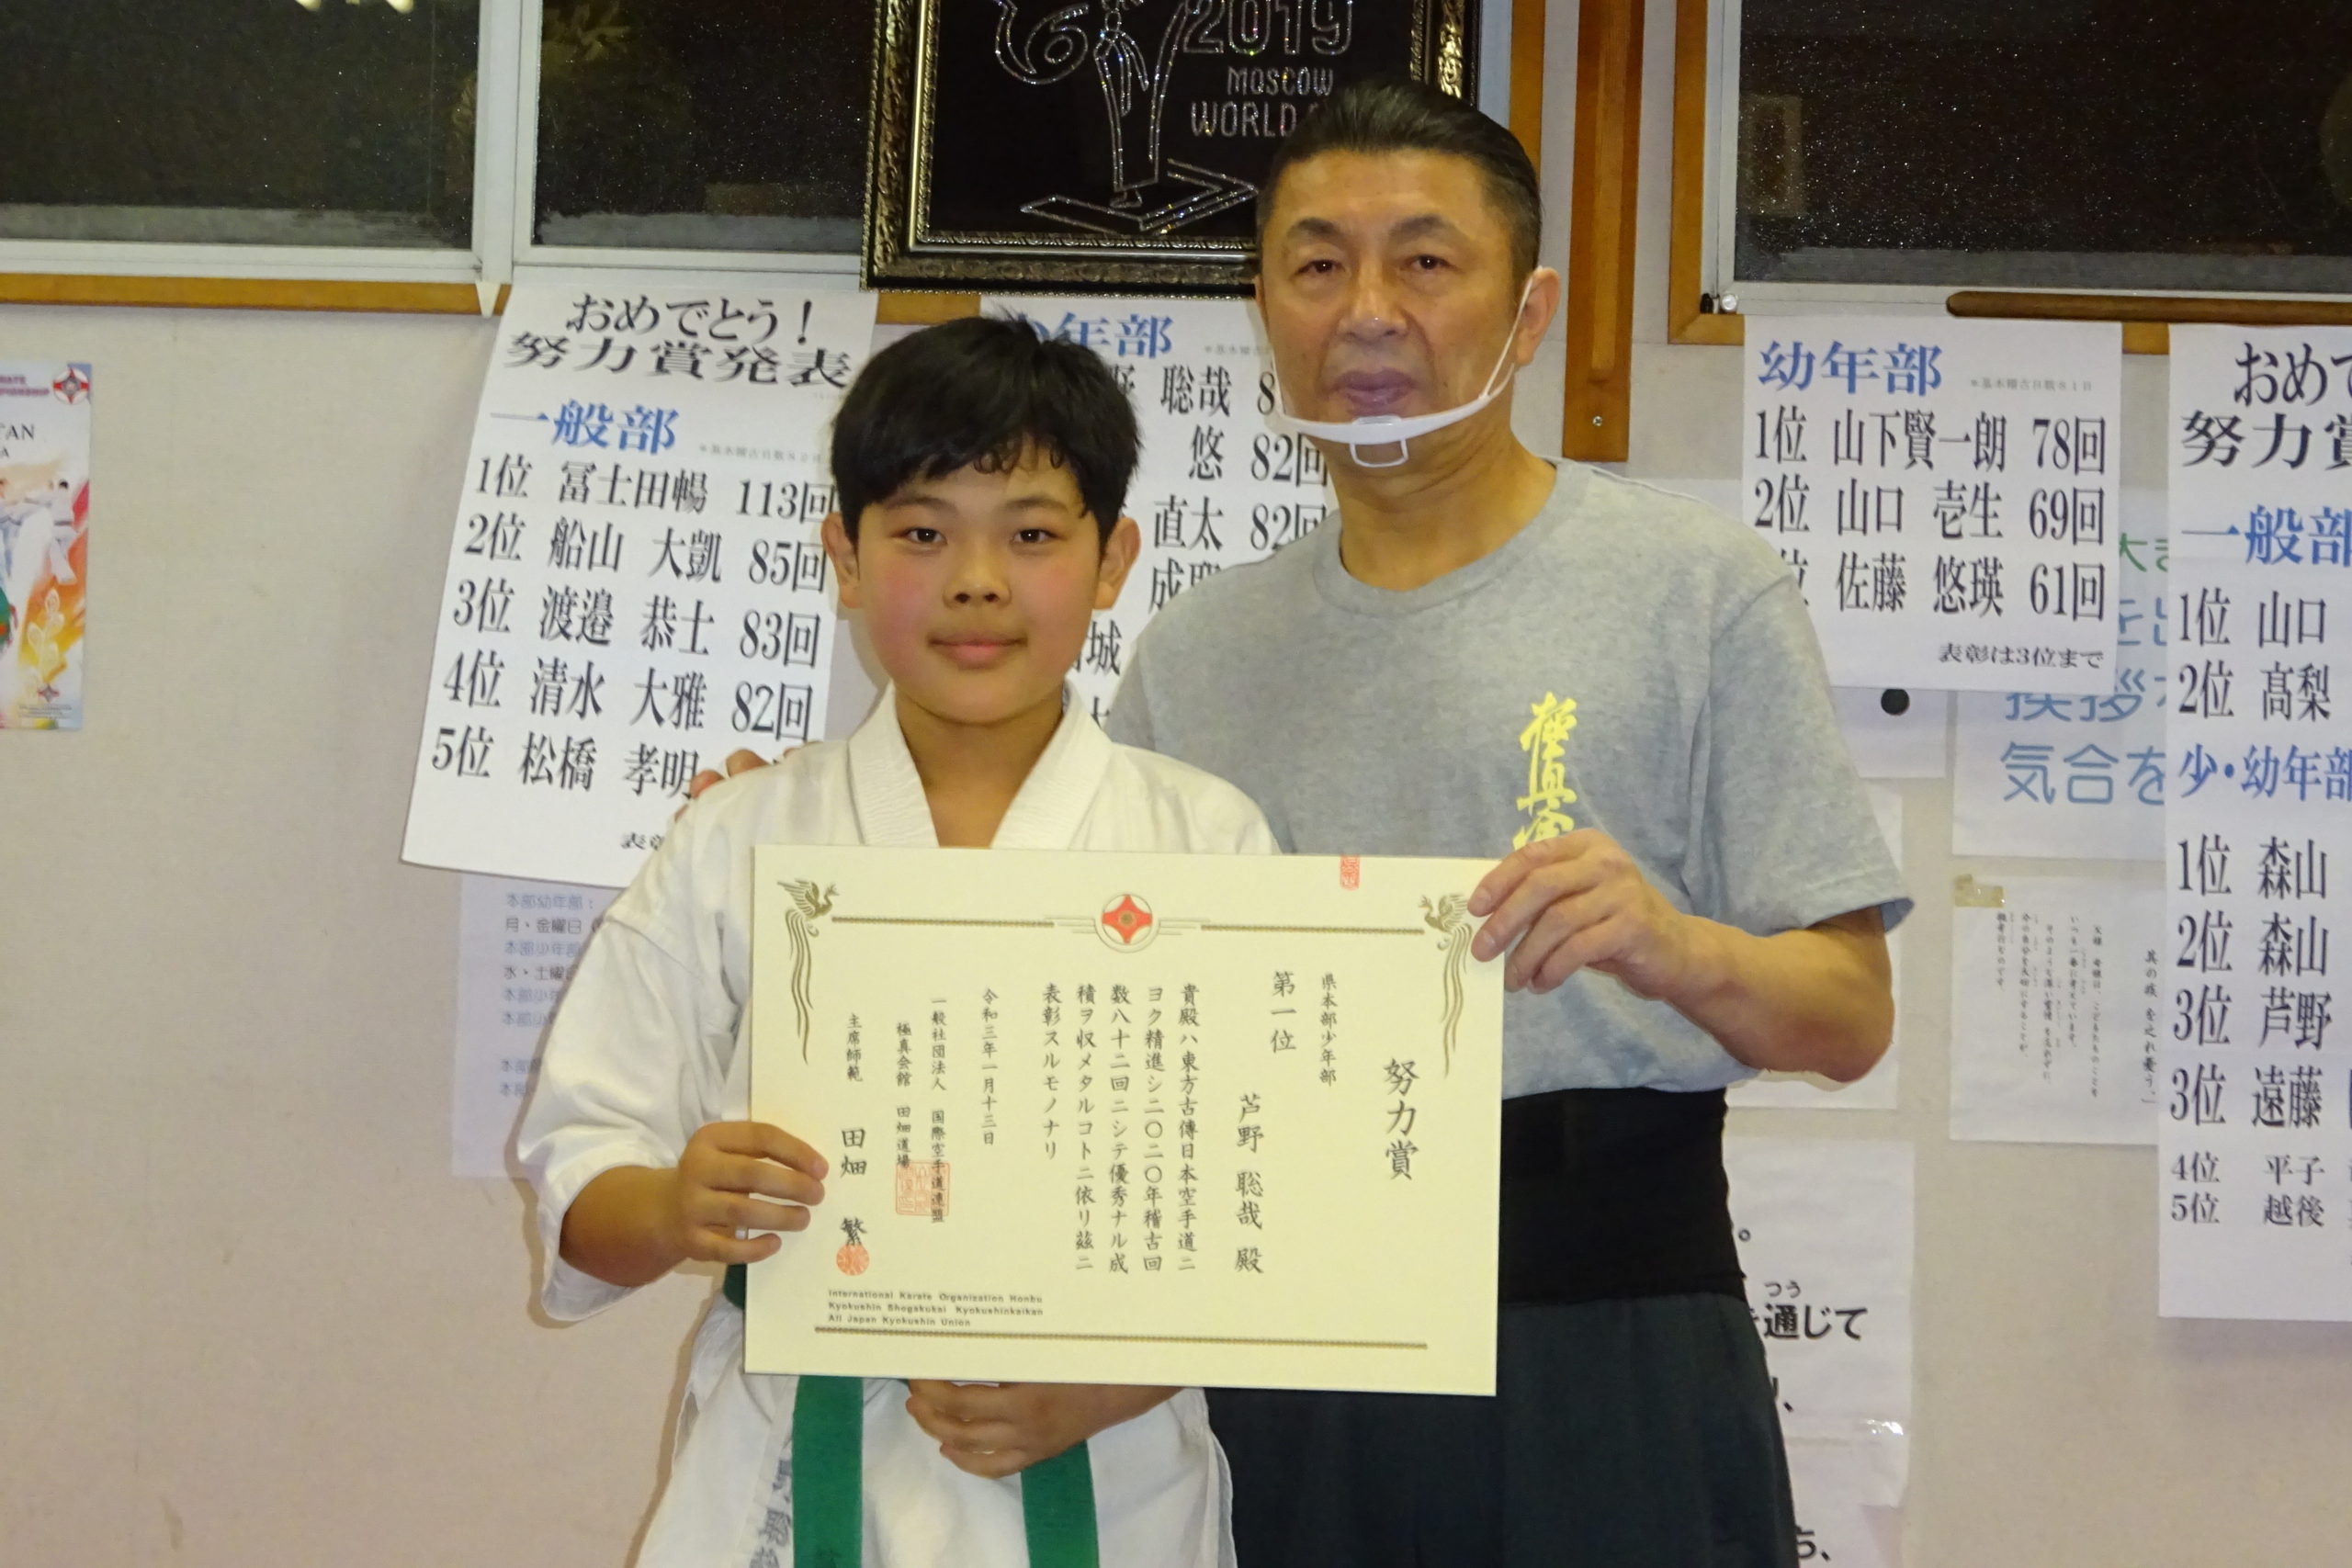 2019
MOSCOW
WORLD
おめでとう！
努力賞発表
一般部
1位 冨士田暢 113回
2位 船山 大凱 85回
3位 渡邉 恭士 83回
4位 清水 大雅 82回
5位 松橋 孝明
少年部
聡哉
悠 82回
直太 82回
幼年部 *基本稽古日数81日
1位 山下賢一朗 78回
2位 山口 壱生 69回
佐藤 悠瑛 61回
表彰は3位まで
おめで
努力賞
一般部
1位 山口
2位 髙梨
少・幼年部
1位 森山
2位 森山
3位 芦野
3位 遠藤
4位 平子
5位 越後
挨拶
気合を
つう
通じて
本部幼年部：
月・金曜日
本部少年部
水・土曜日
極真会
努力賞
県本部少年部
第一位
芦野 聡哉 殿
貴殿ハ東方古傳日本空手道ニ
ヨク精進シ二〇二〇年稽古回
数八十二回ニシテ優秀ナル成
積ヲ収メタルコトニ依リ茲ニ
表彰スルモノナリ
令和三年一月十三日
一般社団法人 国際空手道連盟
極真会館 田畑道場
主席師範 田畑 繁
International Karate Organization Honbu
Kyokushin Shogakukai Kyokushinkaikan
All Japan Kyokushin Union